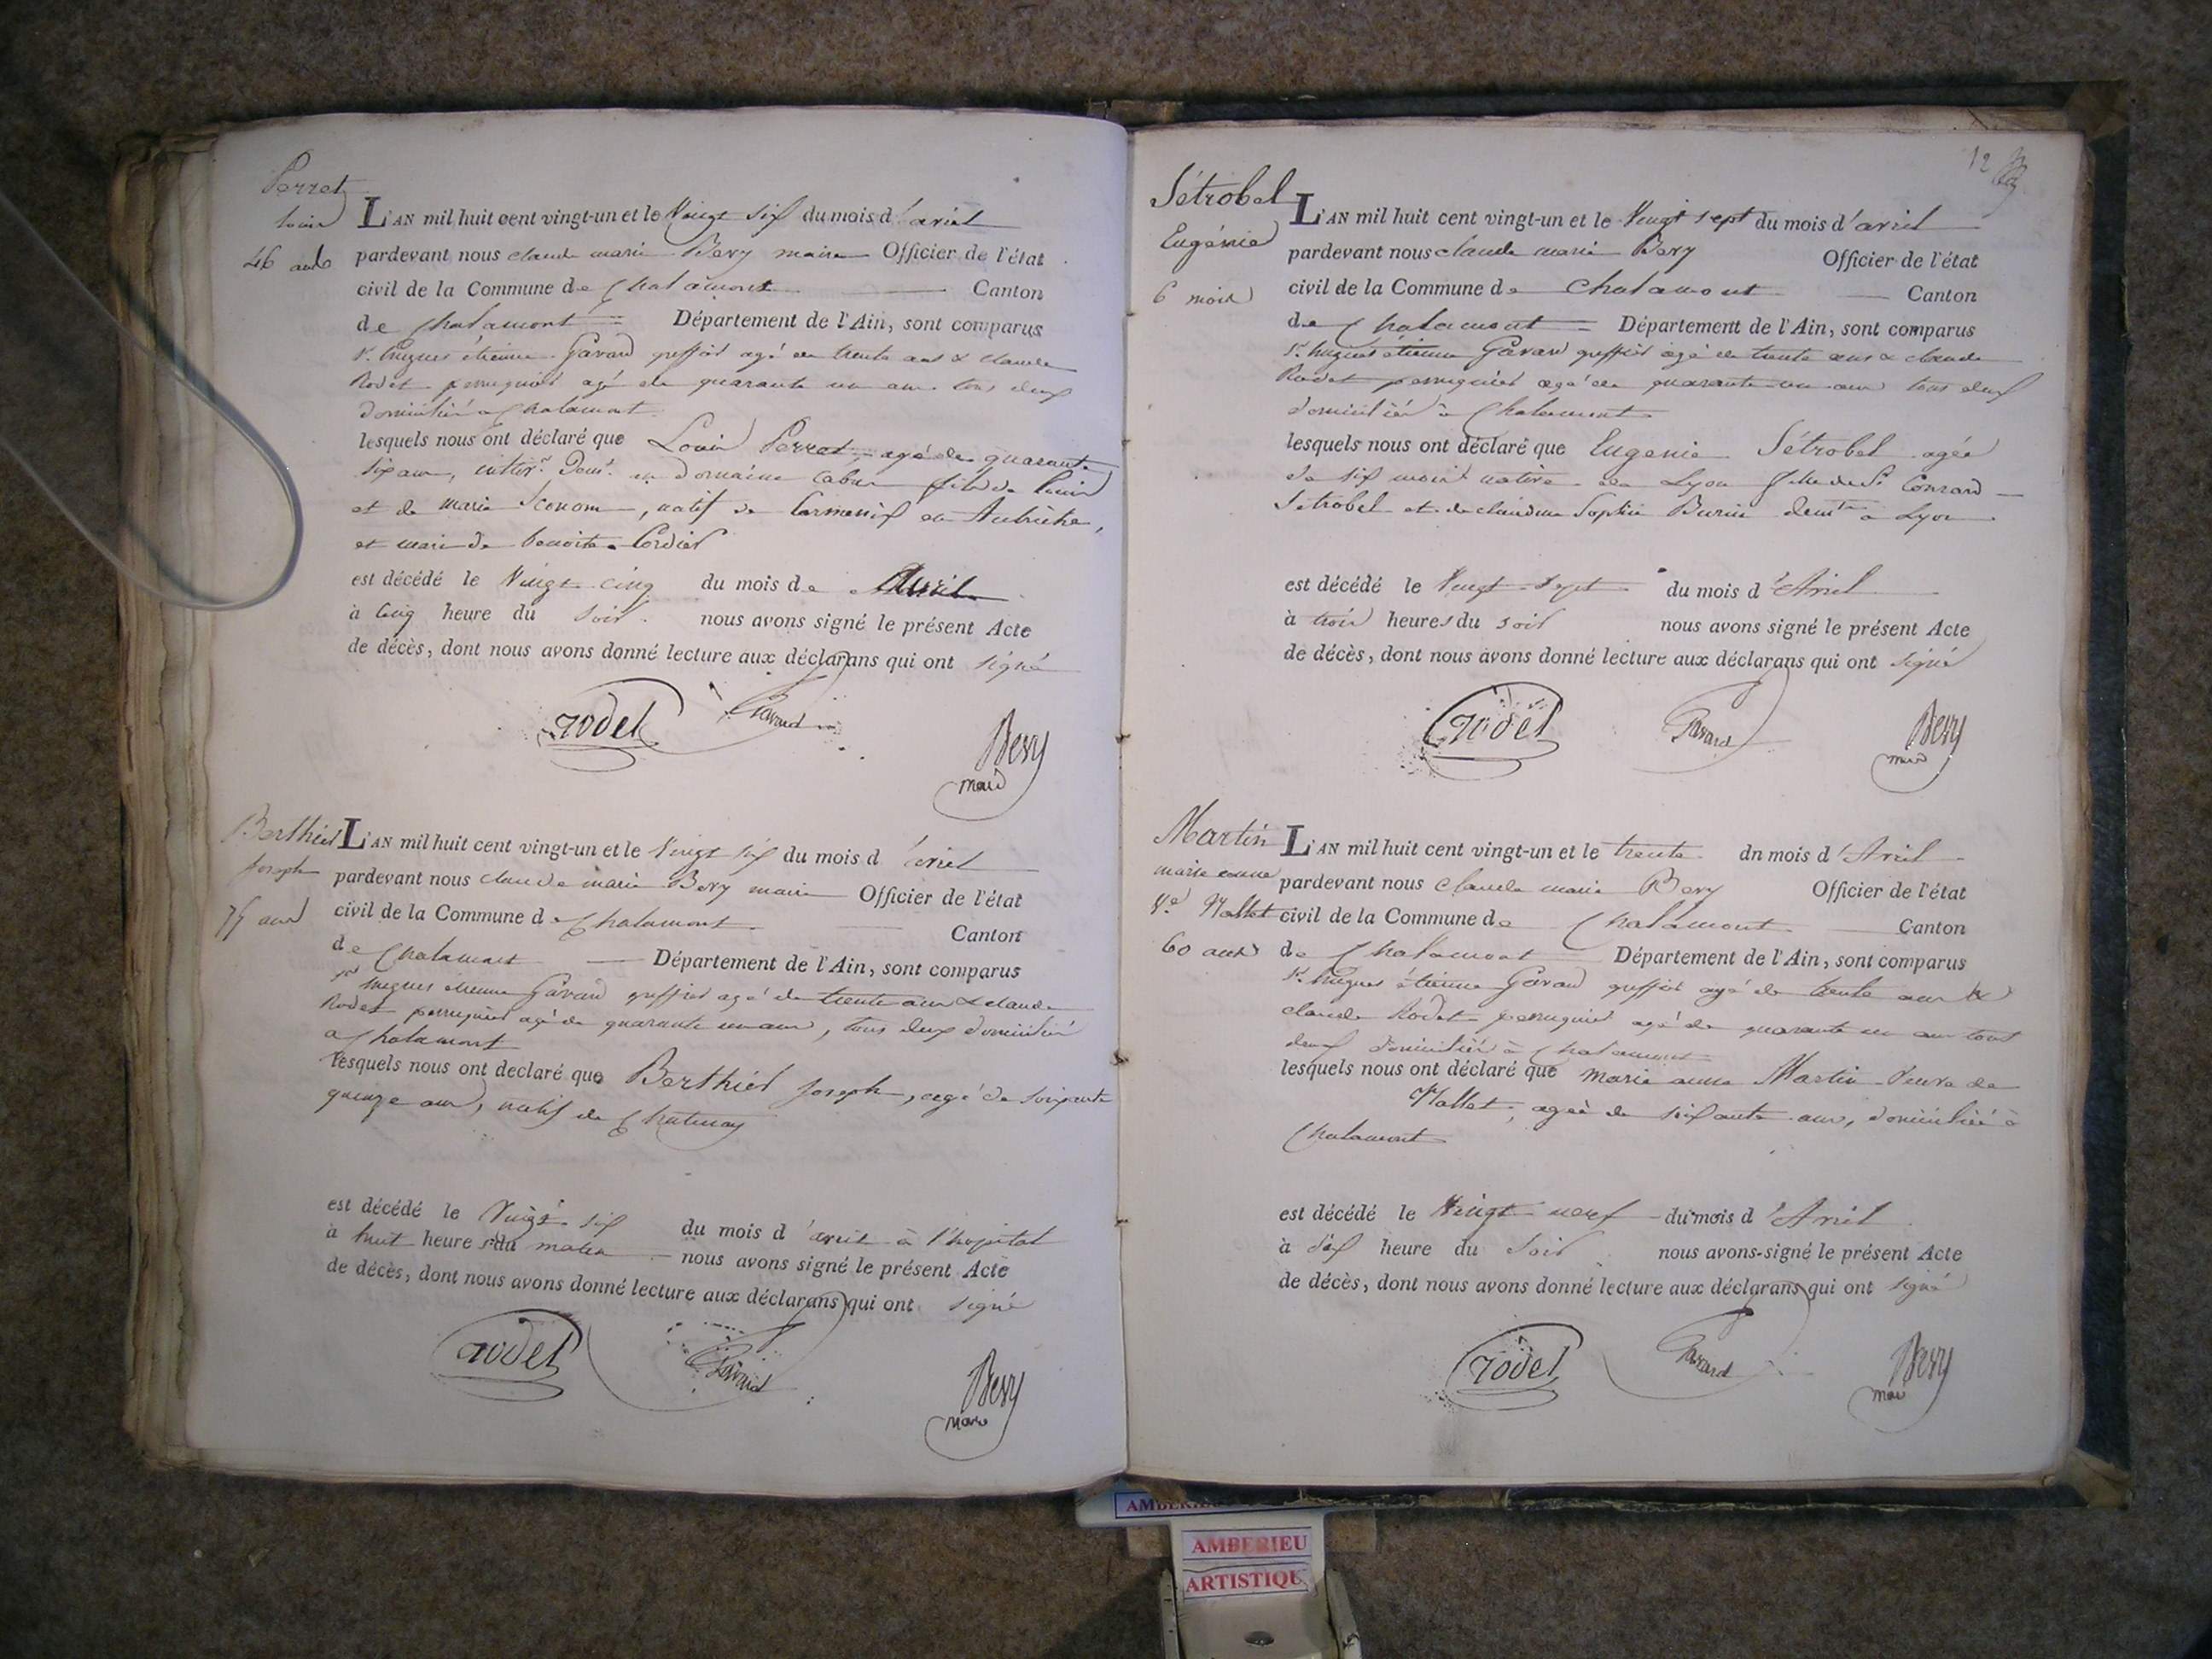 Perret
Louis
46 ans
L'AN mil huit cent vingt-un et le Vingt six du mois d'avril
pardevant nous claude marie Bevy maire Officier de l'état
civil de la Commune de Chalamont Canton
de Chalamont Département de l'Ain, sont comparus
Sr. hugues étienne Gavard greffier agé de trente ans & claude
Rodet perruquier agé de quarante un ans tous deux
domiciliés a Chalamont
lesquels nous ont déclaré que Louis Perret, agé de quarante
six ans, domaine fils de Louis
et de marie, natif de en Autriche,
et mari de benoite Cordier
est décédé le Vingt cinq du mois de Avril
à Cinq heure du soir nous avons signé le présent Acte
de décès, dont nous avons donné lecture aux déclarans qui ont signé
rodet Gavard Bevy
maire
Berthier
Joseph
75 ans
L'AN mil huit cent vingt-un et le Vingt six du mois d'avril
pardevant nous claude marie Bevy maire Officier de l'état
civil de la Commune de Chalamont Canton
de Chalamont Département de l'Ain, sont comparus
Sr hugues étienne Gavard greffier agé de trente ans & claude
Rodet perruquier agé de quarante un ans, tous deux domiciliés
a Chalamont
lesquels nous ont déclaré que Berthier Joseph, agé de soixante
quinze ans, natif de Chatenay
est décédé le Vingt six du mois d'avril à l'hopital
à huit heures du matin nous avons signé le présent Acte
de décès, dont nous avons donné lecture aux déclarans qui ont signé
rodet Gavard Bevy
maire
12
Sétrobel
Eugénie
6 mois
L'AN mil huit cent vingt-un et le Vingt sept du mois d'avril
pardevant nous claude marie Bevy Officier de l'état
civil de la Commune de Chalamont Canton
de Chalamont Département de l'Ain, sont comparus
Sr. hugues étienne Gavard greffier agé de trente ans & claude
Rodet perruquier agé de quarante un ans tous deux
domiciliés à Chalamont
lesquels nous ont déclaré que Eugenie Sétrobel agée
de six mois native de Lyon fille de Sr Conrard
Sétrobel et de claudine Sophie Burin demte a Lyon
est décédé le Vingt sept du mois d'Avril
à trois heures du soir nous avons signé le présent Acte
de décès, dont nous avons donné lecture aux déclarans qui ont signé
rodet Gavard Bevy
maire
Martin
marie anne
Ve. Mallet
60 ans
L'AN mil huit cent vingt-un et le trente dn mois d'Avril
pardevant nous claude marie Bevy Officier de l'état
civil de la Commune de Chalamont Canton
de Chalamont Département de l'Ain, sont comparus
Sr. hugues étienne Gavard greffier agé de trente ans &
claude Rodet perruquier agé de quarante un ans tous
deux domiciliés à Chalamont
lesquels nous ont déclaré que marie anne Martin Veuve de
Mallet, agée de soixante ans, domiciliée à
Chalamont
est décédé le Vingt neuf du mois d'Avril
à six heure du soir nous avons signé le présent Acte
de décès, dont nous avons donné lecture aux déclarans qui ont signé
rodet Gavard Bevy
maire
AMBERIEU
ARTISTIQU